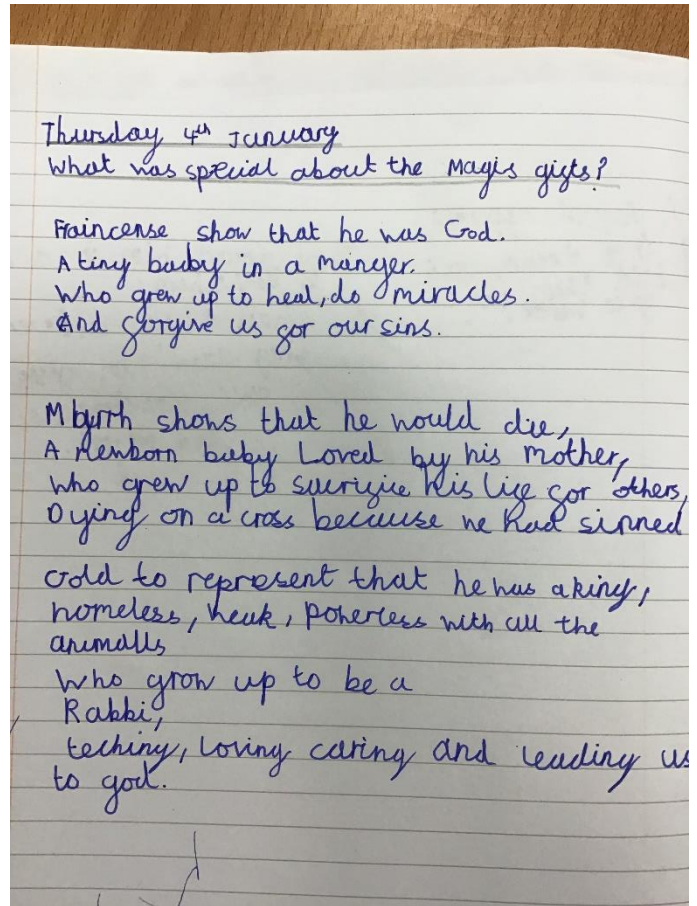 Thursday 4th January
What was special about the Magis gifts?
Fraincense show that he was God.
A tiny baby in a manger.
Who grew up to heal, do miracles.
And forgive us for our sins.
Mbyrrh shows that he would die,
A newborn baby Loved by his mother,
Who grew up to sacrifice his life for others,
Dying on a cross because we had sinned
Gold to represent that he was a king,
homeless, weak, powerless with all the
animalls
Who grow up to be a
Rabbi,
teching, loving caring and leading us
to god.